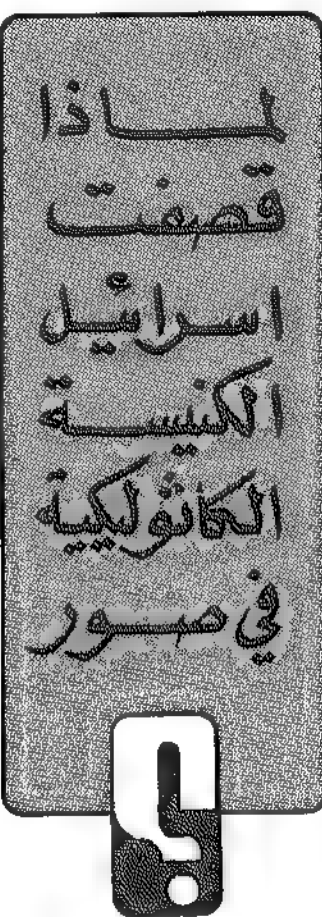 لماذا
قصفت
اسرائيل
الكنيسة
الكاثوليكية
في صور
؟